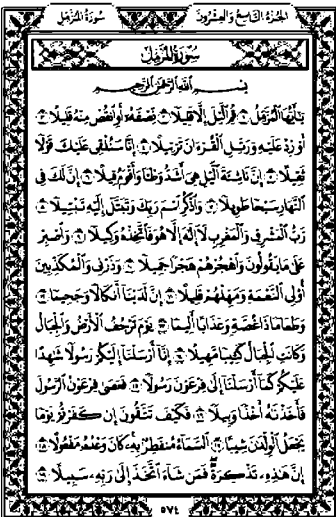 سُورَةُ المُزَّمِّل
الجُزءُ التَّاسِعُ وَالعِشرُونَ
سُورَةُ المُزَّمِّل
بِسْمِ اللَّهِ الرَّحْمَٰنِ الرَّحِيمِ
يَٰٓأَيُّهَا ٱلْمُزَّمِّلُ ١ قُمِ ٱلَّيْلَ إِلَّا قَلِيلًا ٢ نِّصْفَهُۥٓ أَوِ ٱنقُصْ مِنْهُ قَلِيلًا ٣
أَوْ زِدْ عَلَيْهِ وَرَتِّلِ ٱلْقُرْءَانَ تَرْتِيلًا ٤ إِنَّا سَنُلْقِى عَلَيْكَ قَوْلًا
ثَقِيلًا ٥ إِنَّ نَاشِئَةَ ٱلَّيْلِ هِىَ أَشَدُّ وَطْـًٔا وَأَقْوَمُ قِيلًا ٦ إِنَّ لَكَ فِى
ٱلنَّهَارِ سَبْحًا طَوِيلًا ٧ وَٱذْكُرِ ٱسْمَ رَبِّكَ وَتَبَتَّلْ إِلَيْهِ تَبْتِيلًا ٨
رَّبُّ ٱلْمَشْرِقِ وَٱلْمَغْرِبِ لَآ إِلَٰهَ إِلَّا هُوَ فَٱتَّخِذْهُ وَكِيلًا ٩ وَٱصْبِرْ
عَلَىٰ مَا يَقُولُونَ وَٱهْجُرْهُمْ هَجْرًا جَمِيلًا ١٠ وَذَرْنِى وَٱلْمُكَذِّبِينَ
أُو۟لِى ٱلنَّعْمَةِ وَمَهِّلْهُمْ قَلِيلًا ١١ إِنَّ لَدَيْنَآ أَنكَالًا وَجَحِيمًا ١٢
وَطَعَامًا ذَا غُصَّةٍ وَعَذَابًا أَلِيمًا ١٣ يَوْمَ تَرْجُفُ ٱلْأَرْضُ وَٱلْجِبَالُ
وَكَانَتِ ٱلْجِبَالُ كَثِيبًا مَّهِيلًا ١٤ إِنَّآ أَرْسَلْنَآ إِلَيْكُمْ رَسُولًا شَٰهِدًا
عَلَيْكُمْ كَمَآ أَرْسَلْنَآ إِلَىٰ فِرْعَوْنَ رَسُولًا ١٥ فَعَصَىٰ فِرْعَوْنُ ٱلرَّسُولَ
فَأَخَذْنَٰهُ أَخْذًا وَبِيلًا ١٦ فَكَيْفَ تَتَّقُونَ إِن كَفَرْتُمْ يَوْمًا
يَجْعَلُ ٱلْوِلْدَٰنَ شِيبًا ١٧ ٱلسَّمَآءُ مُنفَطِرٌۢ بِهِۦ كَانَ وَعْدُهُۥ مَفْعُولًا ١٨
إِنَّ هَٰذِهِۦ تَذْكِرَةٌ فَمَن شَآءَ ٱتَّخَذَ إِلَىٰ رَبِّهِۦ سَبِيلًا ١٩
٥٧٤